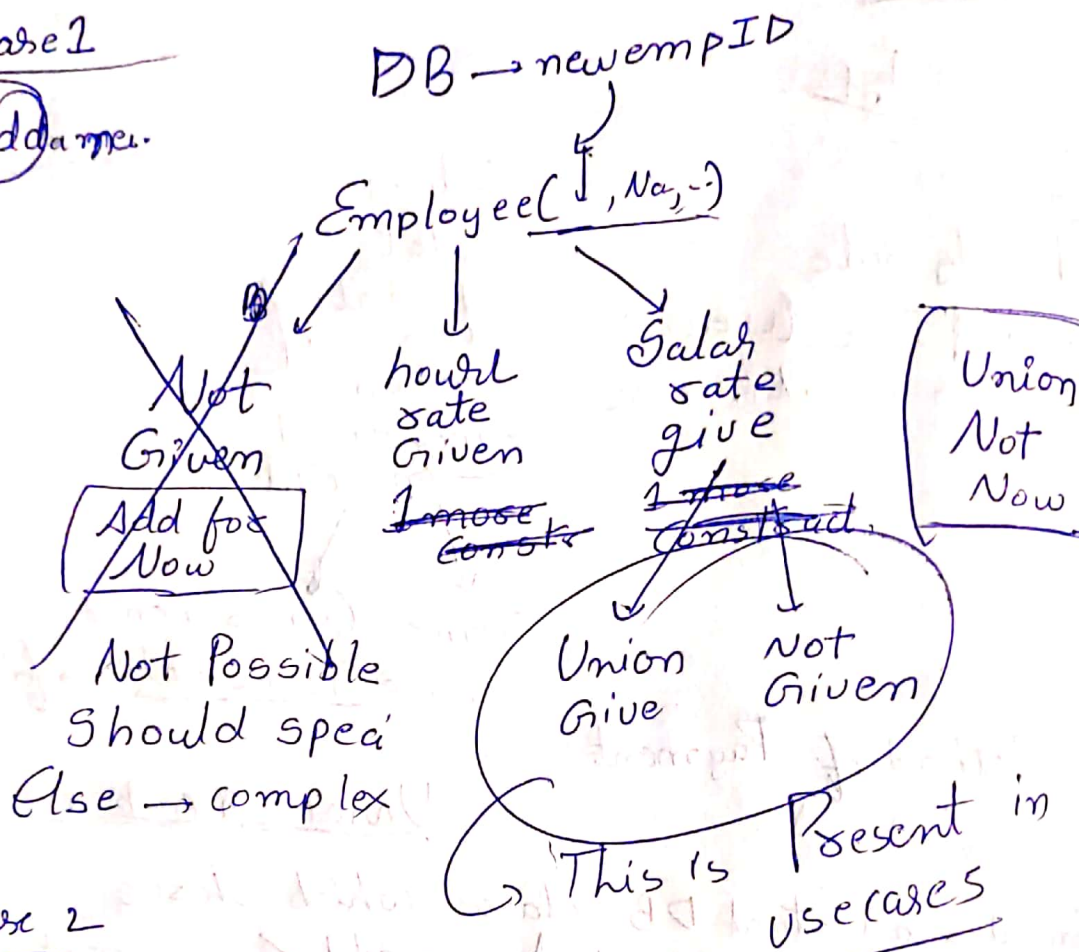 ase 1
DB → newempID
Employee( , Na, --)
Not
Given
Add for
Now
Not Possible
Should speci
Else → complex
hourl
rate
Given
1 more
Constr
Salar
rate
give
1 more
Construct.
Union
Give
Not
Given
This is Present in
usecases
Union
Not
Now
se 2